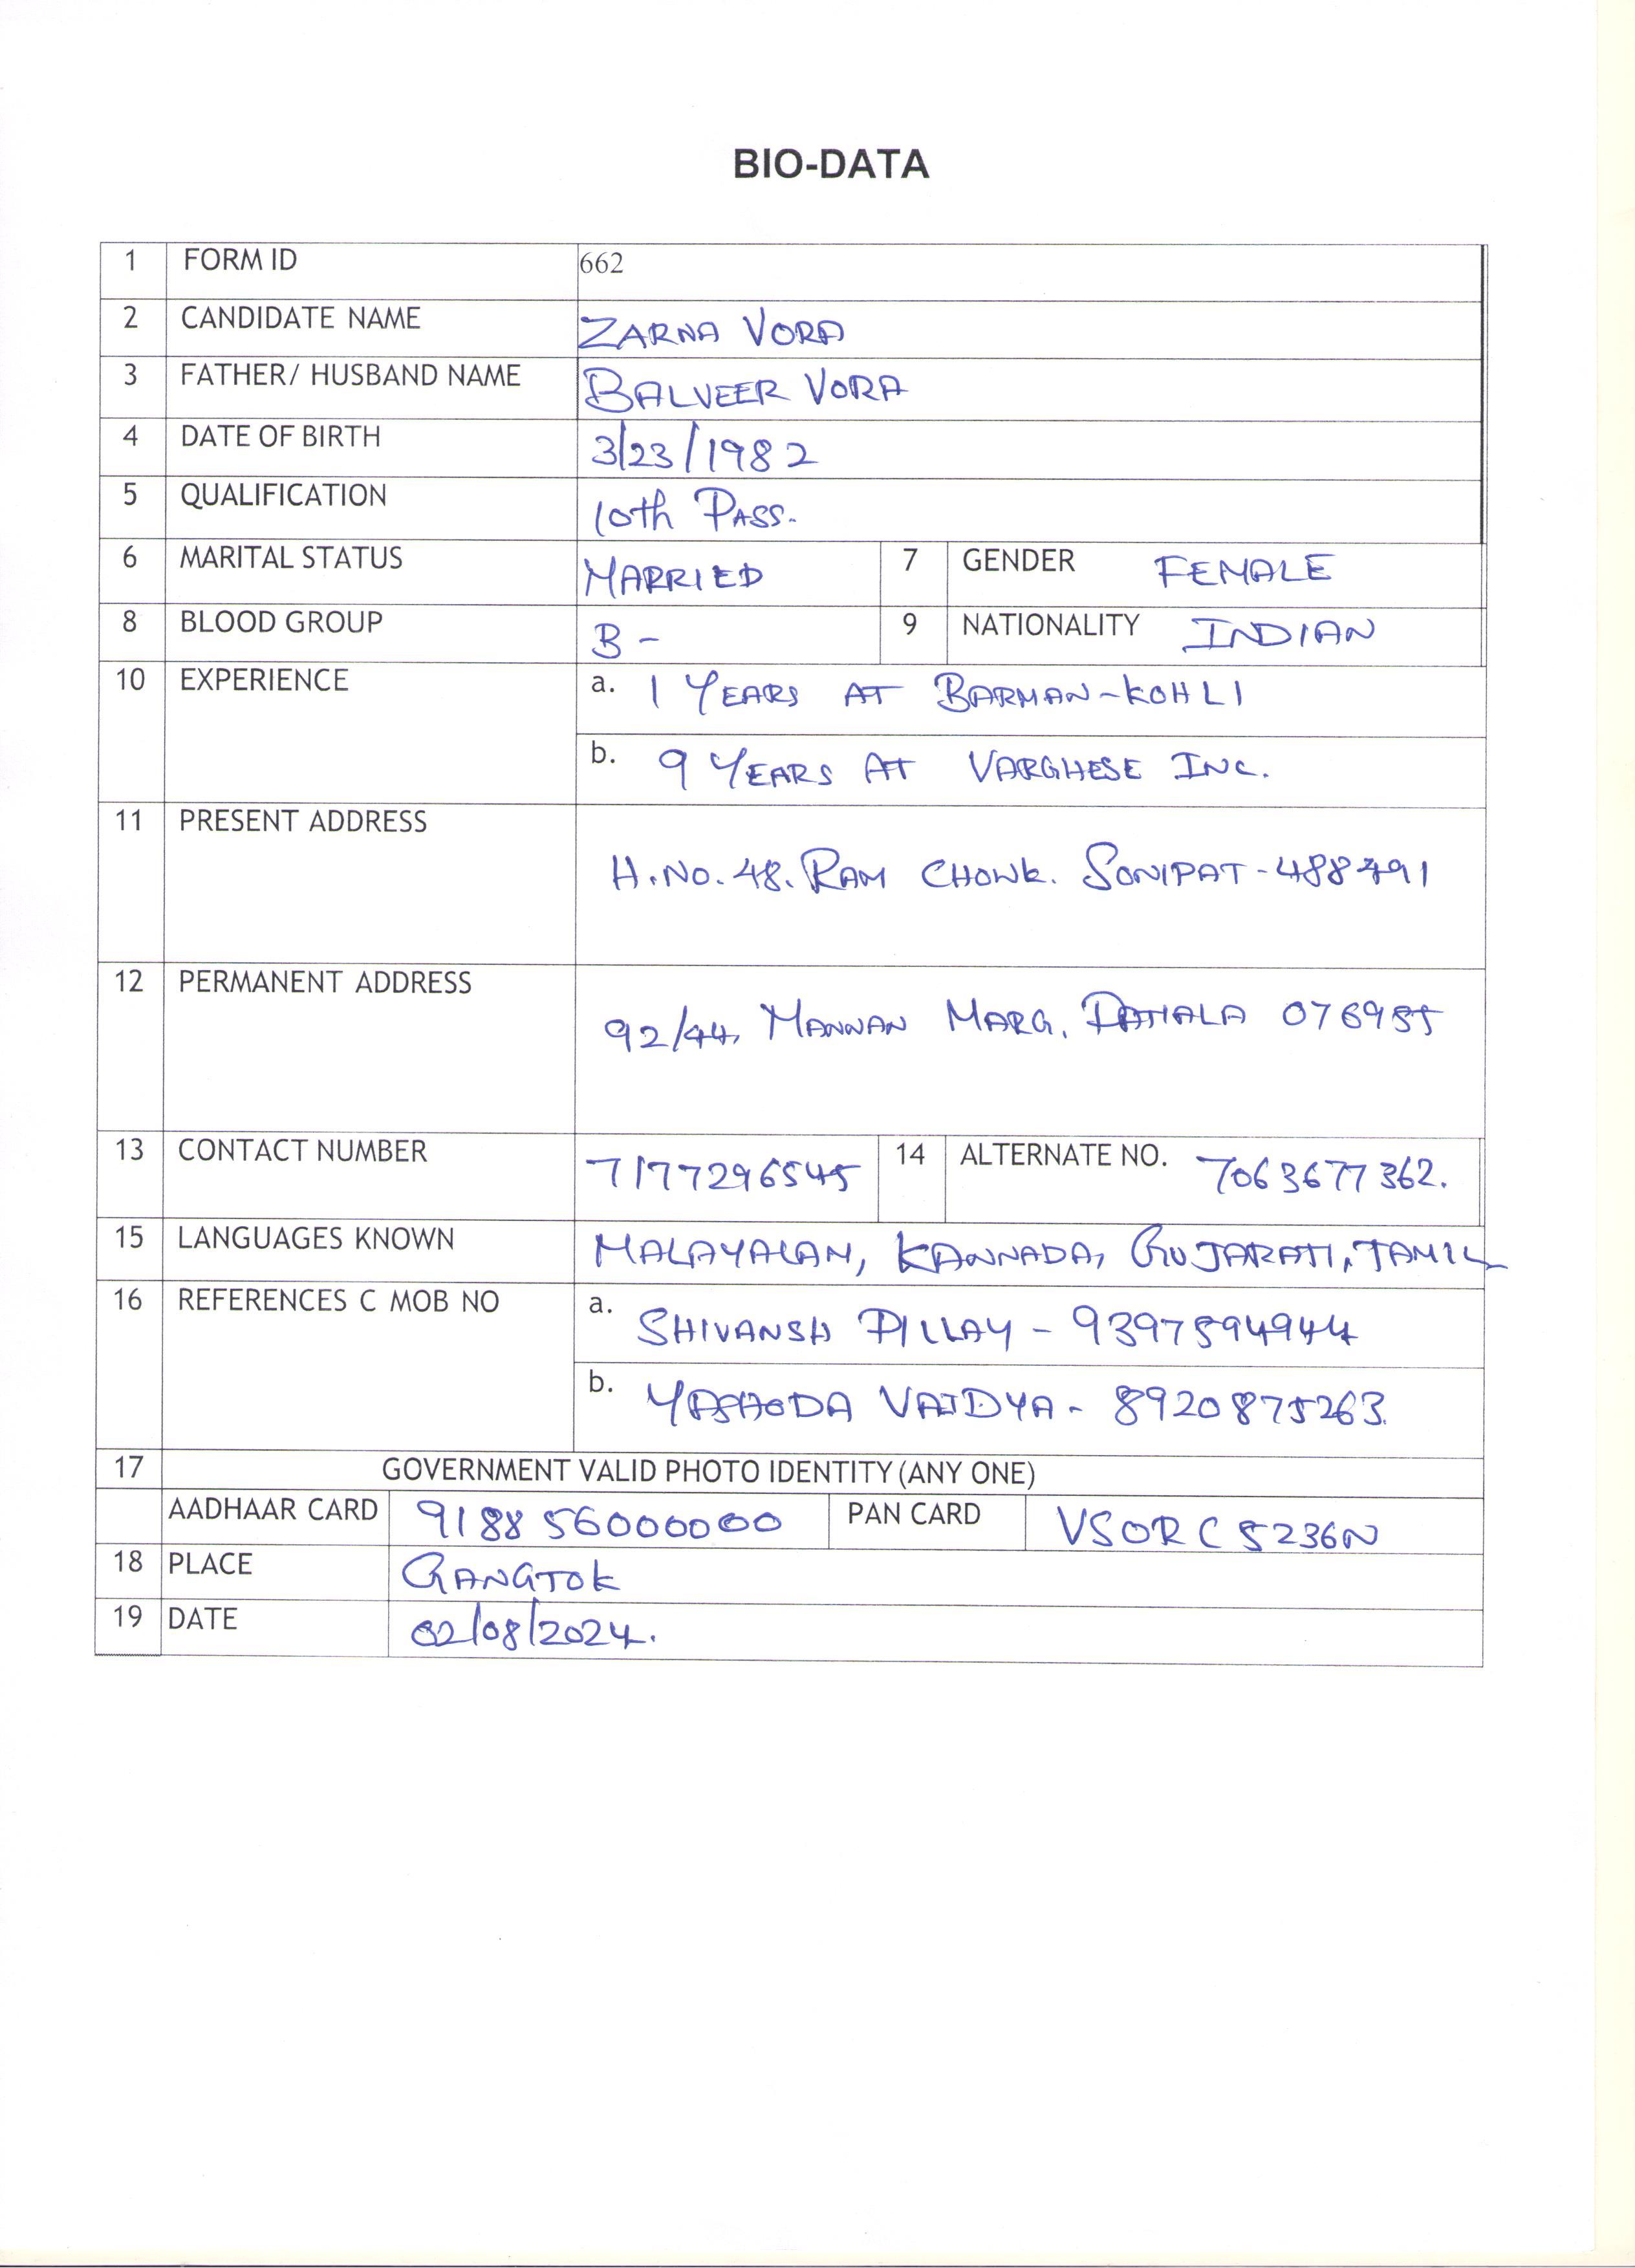 BIO-DATA
1 FORM ID 662
2 CANDIDATE NAME ZARNA VORA
3 FATHER/ HUSBAND NAME BALVEER VORA
4 DATE OF BIRTH 3/23/1982
5 QUALIFICATION 10th PASS.
6 MARITAL STATUS MARRIED 7 GENDER FEMALE
8 BLOOD GROUP B- 9 NATIONALITY INDIAN
10 EXPERIENCE a. 1 YEARS AT BARMAN-KOHLI
b. 9 YEARS AT VARGHESE INC.
11 PRESENT ADDRESS
H.NO. 48. RAM CHOWK. SONIPAT-488791
12 PERMANENT ADDRESS
92/44, MANNAN MARG, PATIALA 076955
13 CONTACT NUMBER 7177296545 14 ALTERNATE NO. 7063677362.
15 LANGUAGES KNOWN MALAYALAM, KANNADA, GUJARATI, TAMIL
16 REFERENCES C MOB NO a. SHIVANSH PILLAY - 9397594944
b. YASHODA VAIDYA - 8920875263.
17 GOVERNMENT VALID PHOTO IDENTITY (ANY ONE)
AADHAAR CARD 918856000000 PAN CARD VSORC5236N
18 PLACE GANGTOK
19 DATE 02/08/2024.